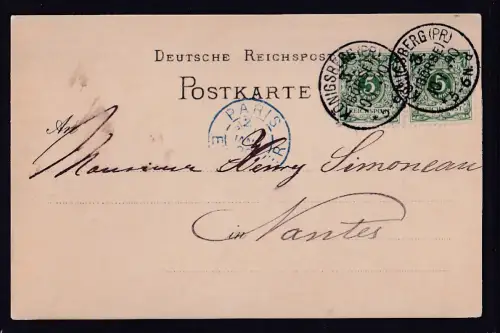 DEUTSCHE REICHSPOST
POSTKARTE
KÖNIGSBERG (PR)
KÖNIGSBERG (PR)
5
5
PARIS
An
Monsieur Henry Simoneau
in Nantes